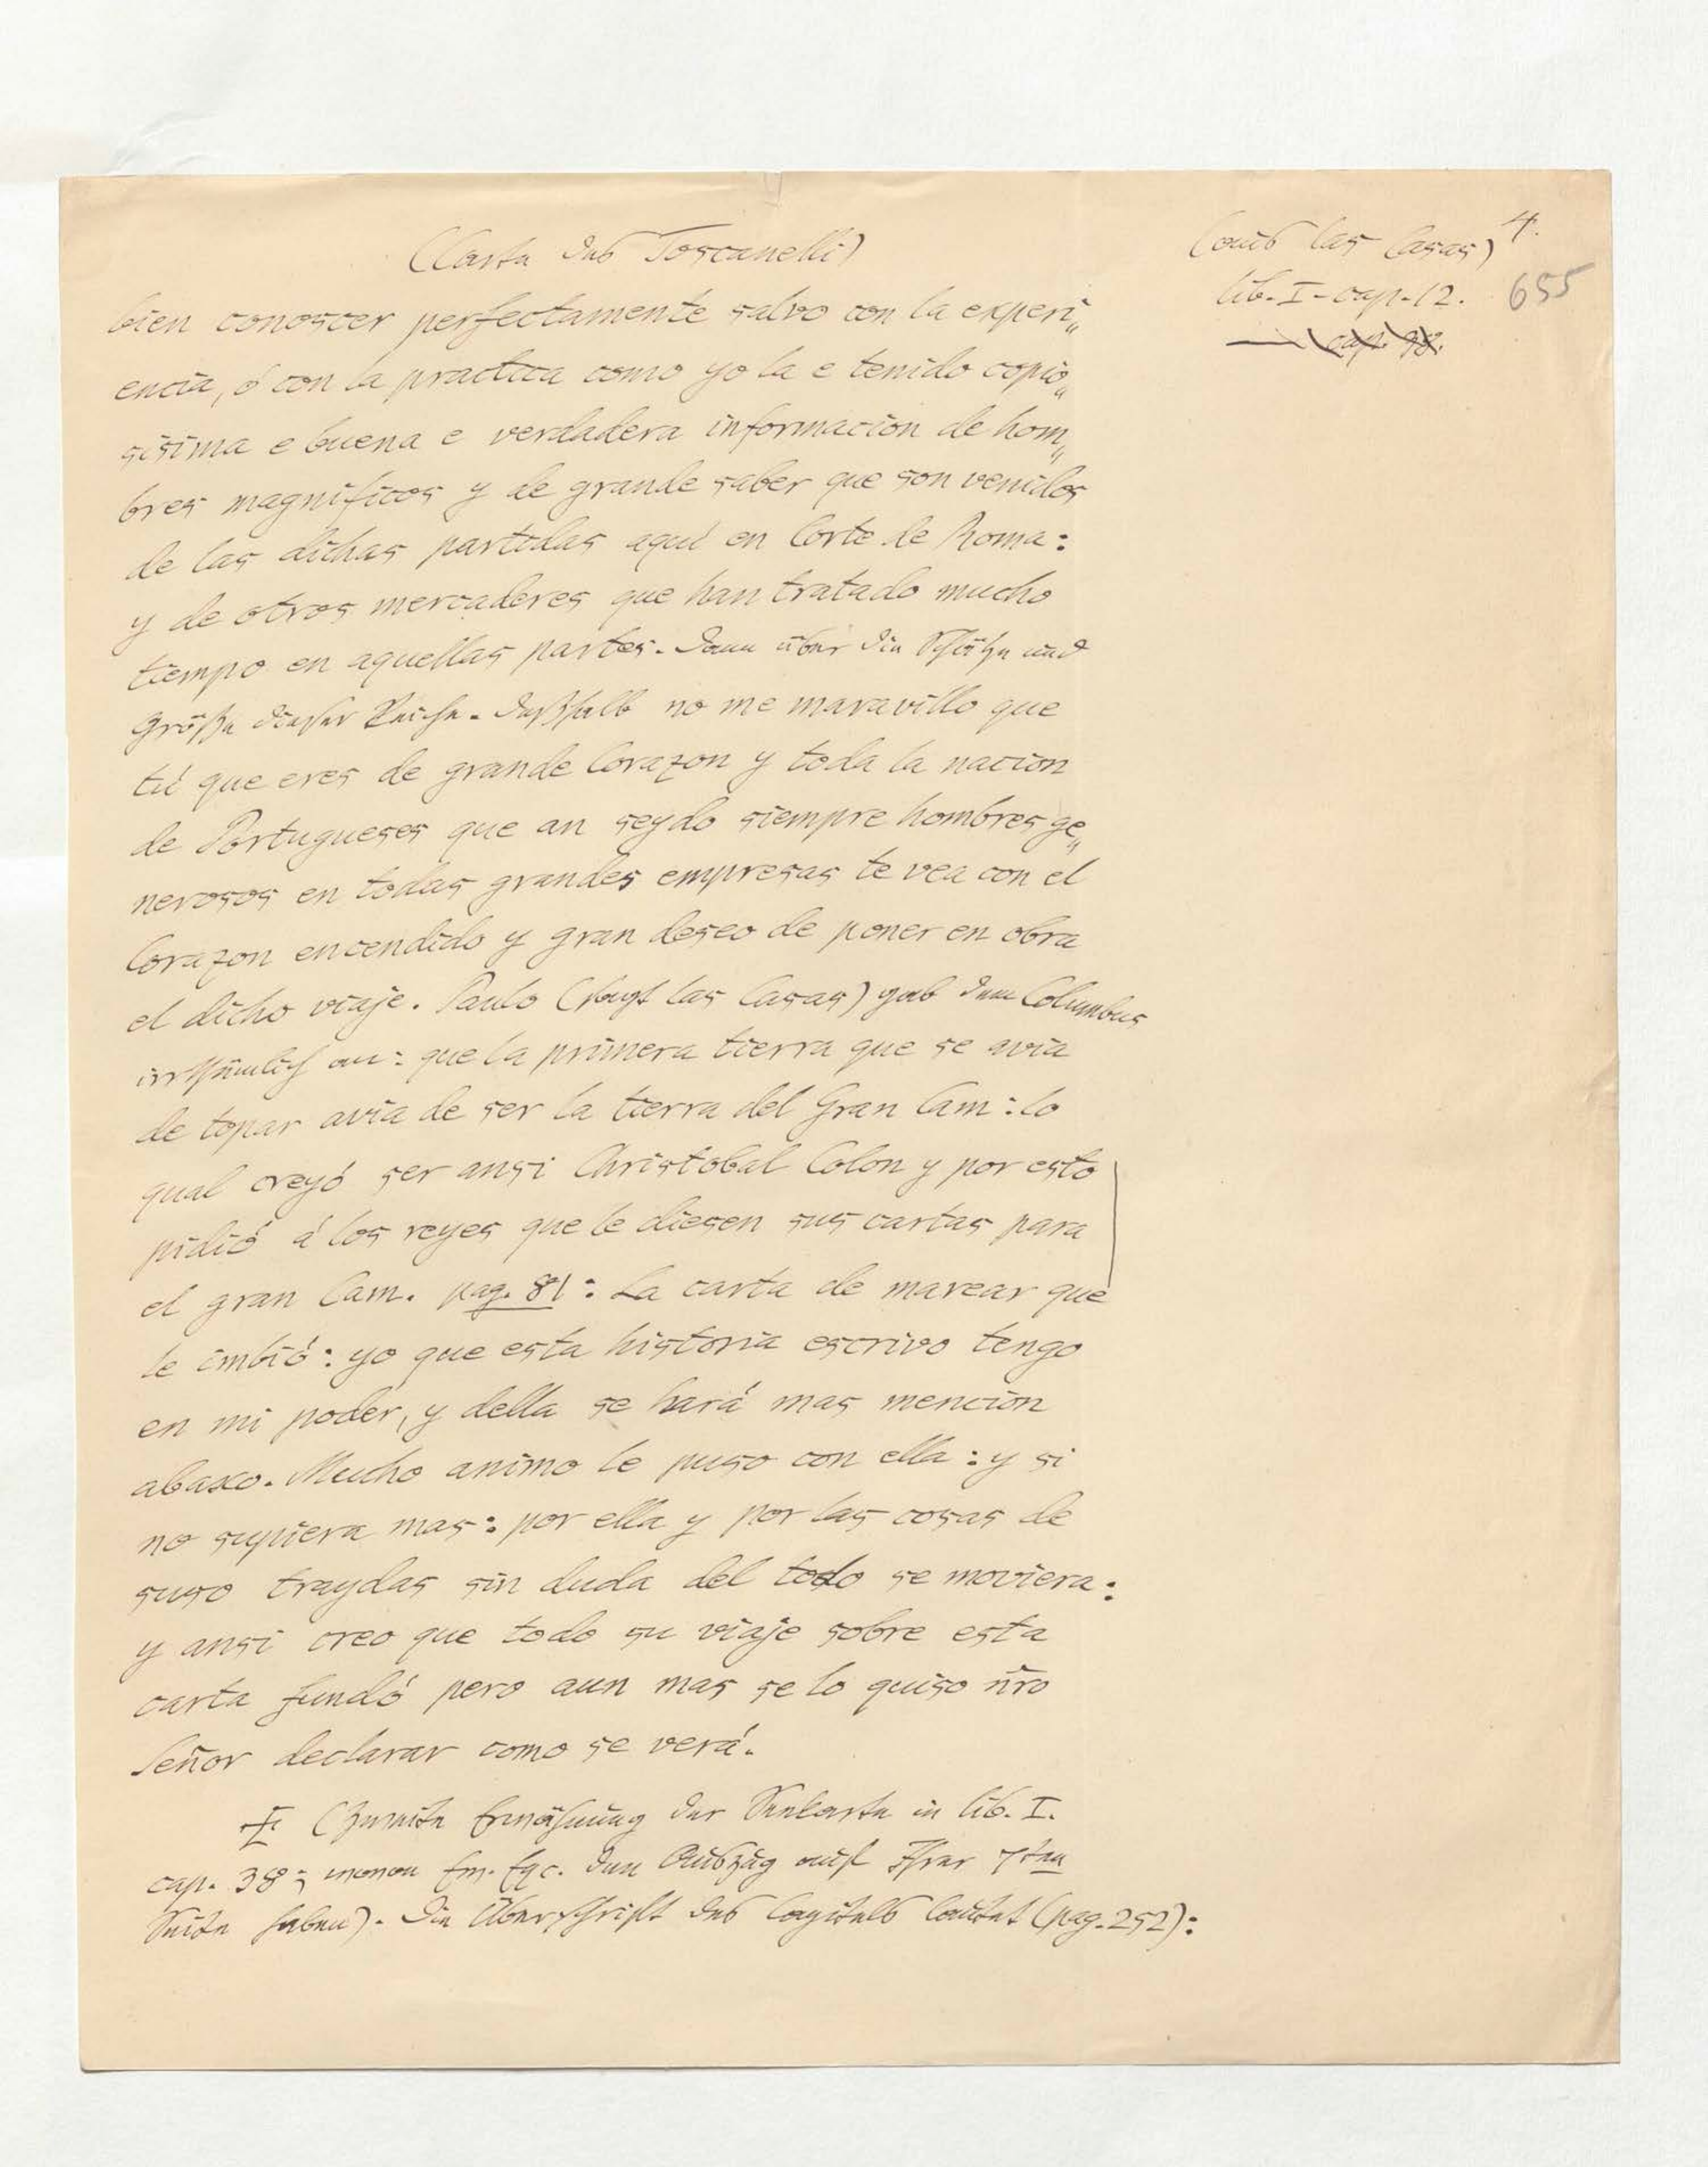 (Carta des Toscanelli)
(aus las Casas) 4.
lib. I - cap. 12. 655
— cap. 38.
bien conoscer perfectamente salvo con la experi„
encia, ó con la practica como yo la e tenido copio„
sisima e buena e verdadera informacion de hom„
bres magnificos y de grande saber que son venidos
de las dichas partidas aqui en Corte de Roma:
y de otros mercaderes que han tratado mucho
tiempo en aquellas partes. Dann über die Schätze und
Größe dieser Reiche. Deßhalb no me maravillo que
tú que eres de grande Corazon y toda la nacion
de Portugueses que an seydo siempre hombres ge„
nerosos en todas grandes empresas te vea con el
Corazon encendido y gran deseo de poner en obra
el dicho viaje. Paulo (sagt las Casas) gab dem Columbus
irrthümlich an: que la primera tierra que se avia
de topar avia de ser la tierra del Gran Cam: lo
qual creyó ser ansi Christobal Colon y por esto
pidió á los reyes que le diesen sus cartas para
el gran Cam. pag. 81: La carta de marear que
le imbió: yo que esta historia escrivo tengo
en mi poder, y della se hará mas mencion
abaxo. Mucho animo le puso con ella: y si
no supiera mas: por ella y por las cosas de
suso traydas sin duda del todo se moviera:
y ansi creo que todo su viaje sobre esta
carta fundó pero aun mas se lo quiso ñro
Señor declarar como se verá.
(Zweite Erwähnung der Seekarte in lib. I.
cap. 38; wovon Ew. Exc. den Auszug auf Ihrer 7ten
Seite haben). Die Überschrift des Capitels lautet (pag. 252):